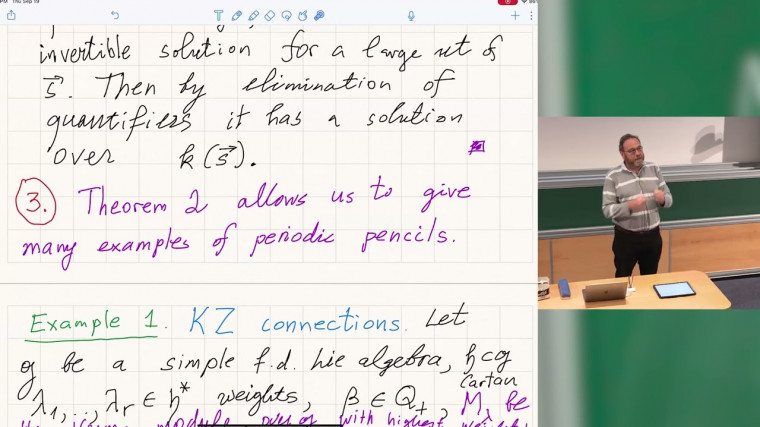 Thu Sep 19
invertible solution for a large set of
s⃗. Then by elimination of
quantifiers it has a solution
over k(s⃗).
3. Theorem 2 allows us to give
many examples of periodic pencils.
Example 1. KZ connections. Let
𝔤 be a simple f.d. Lie algebra, 𝔥⊂𝔤
Cartan
λ₁,..,λᵣ ∈ 𝔥* weights, β ∈ Q₊, M_λ be
module over 𝔤 with highest weight